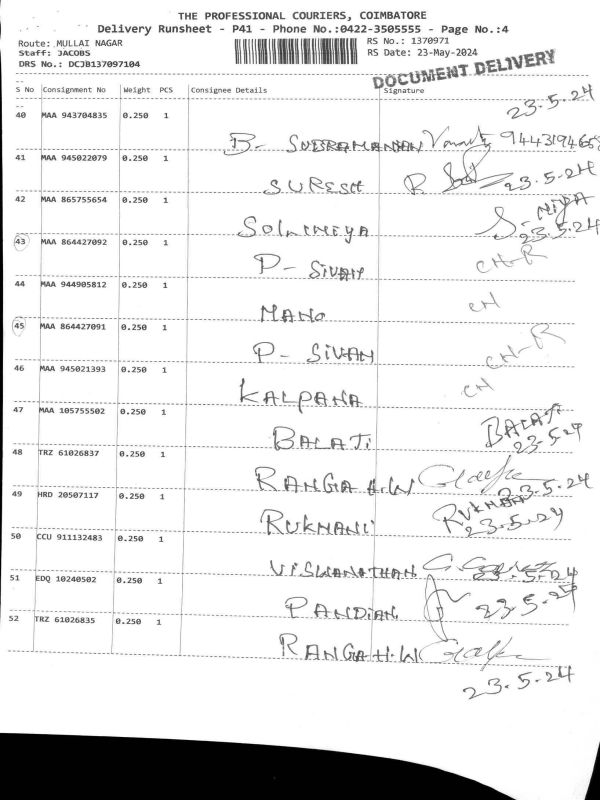 THE PROFESSIONAL COURIERS, COIMBATORE
Delivery Runsheet - P41 - Phone No.:0422-3505555 - Page No.:4
Route: MULLAI NAGAR RS No.: 1370971
Staff: JACOBS RS Date: 23-May-2024
DRS No.: DCJB137097104
DOCUMENT DELIVERY
S No Consignment No Weight PCS Consignee Details Signature
40 MAA 943704835 0.250 1 23.5.24
B- SUBRAMANIAN
41 MAA 945022079 0.250 1
SURESH R 23.5.24
42 MAA 865755654 0.250 1
23.5.24
43 MAA 864427092 0.250 1
P- SIVAM CH-R
44 MAA 944905812 0.250 1
MANO CH
45 MAA 864427091 0.250 1
P- SIVAN CH-R
46 MAA 945021393 0.250 1
KALPANA CH
47 MAA 105755502 0.250 1
BALAJI BALAJI 23.5.24
48 TRZ 61026837 0.250 1
RANGA H.W 23.5.24
49 HRD 20507117 0.250 1
RUKMANI 23.5.24
50 CCU 911132483 0.250 1
VISWANATHAN 23.5.24
51 EDQ 10240502 0.250 1
PANDIAN 23.5.24
52 TRZ 61026835 0.250 1
RANGA H.W
23.5.24